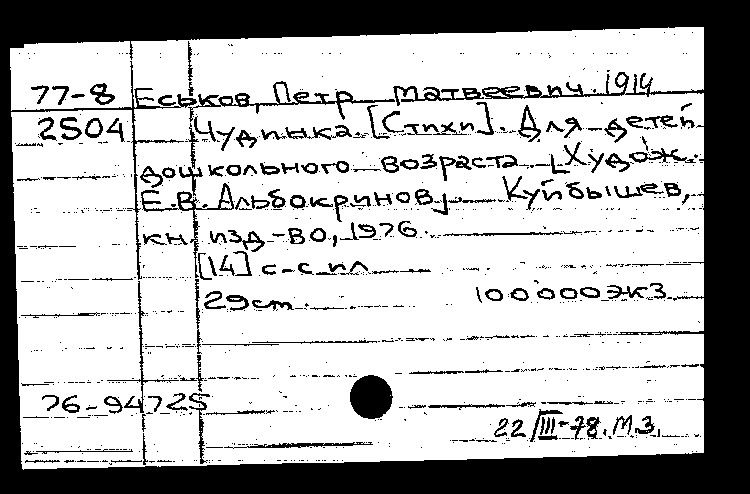 77-8 Еськов, Петр Матвеевич. 1914
2504 Чудинка. [Стихи]. Для детей
дошкольного возраста [Худож.
Е.В. Альбокринов]. Куйбышев,
кн. изд-во, 1976.
[14] с. с ил.
29 cm. 100000 экз
76-94725
22/III-78. М.З.